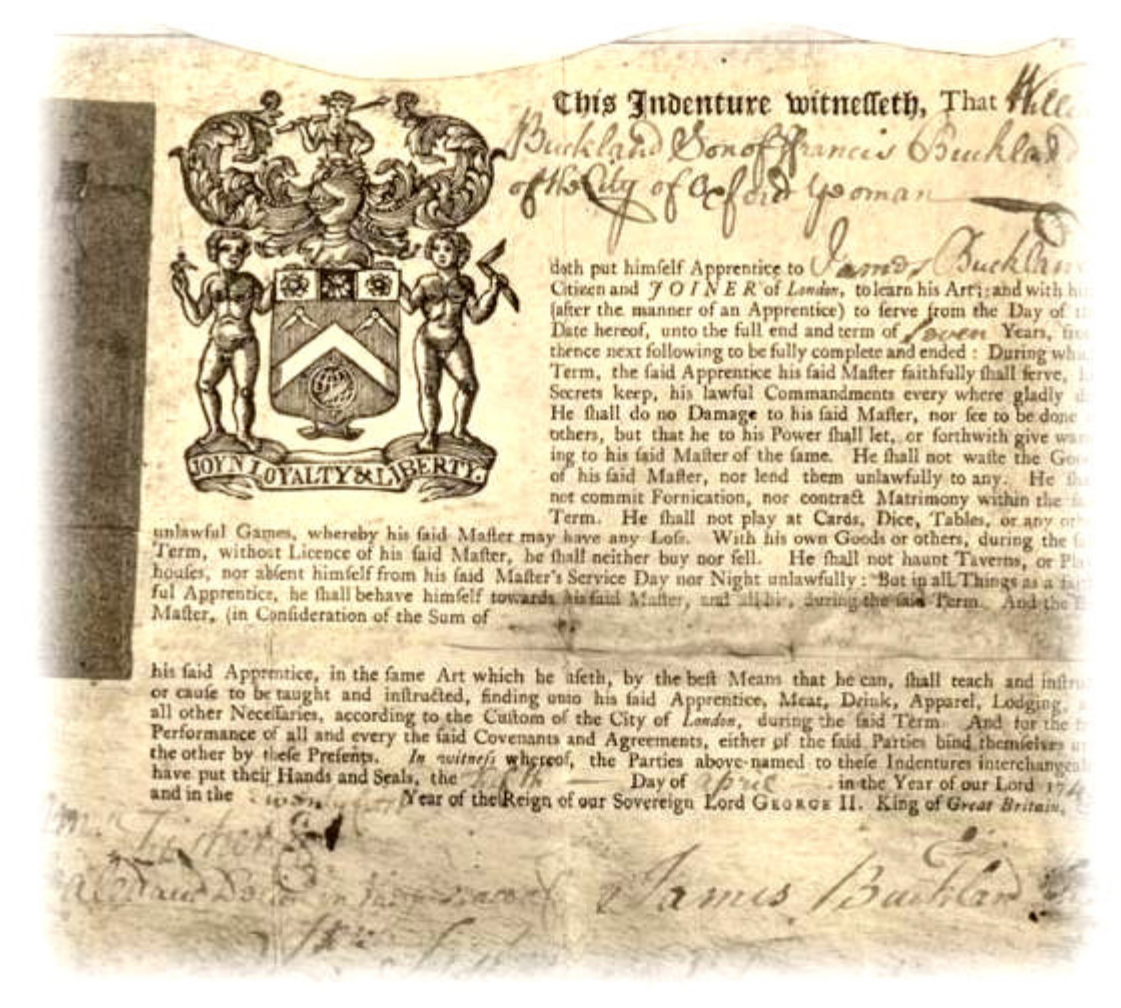 This Indenture witnesseth, That Will
Buckland Son of Francis Buckland
of the City of Oxford Yeoman
doth put himself Apprentice to James Buckland
Citizen and JOINER of London, to learn his Art; and with hi
(after the manner of an Apprentice) to serve from the Day of t
Date hereof, unto the full end and term of Seven Years, fro
thence next following to be fully complete and ended: During whi
Term, the said Apprentice his said Master faithfully shall serve,
Secrets keep, his lawful Commandments every where gladly d
He shall do no Damage to his said Master, nor see to be done
others, but that he to his Power shall let, or forthwith give wa
ing to his said Master of the same. He shall not waste the Goo
of his said Master, nor lend them unlawfully to any. He sha
not commit Fornication, nor contract Matrimony within the s
Term. He shall not play at Cards, Dice, Tables, or any oth
JOYN LOYALTY & LIBERTY.
unlawful Games, whereby his said Master may have any Loss. With his own Goods or others, during the s
Term, without Licence of his said Master, he shall neither buy nor sell. He shall not haunt Taverns, or Pla
houses, nor absent himself from his said Master's Service Day nor Night unlawfully: But in all Things as a fai
ful Apprentice, he shall behave himself towards his said Master, and all his, during the said Term. And the
Master, (in Consideration of the Sum of
his said Apprentice, in the same Art which he useth, by the best Means that he can, shall teach and instru
or cause to be taught and instructed, finding unto his said Apprentice, Meat, Drink, Apparel, Lodging,
all other Necessaries, according to the Custom of the City of London, during the said Term. And for the
Performance of all and every the said Covenants and Agreements, either of the said Parties bind themselves u
the other by these Presents. In witness whereof, the Parties above-named to these Indentures interchangea
have put their Hands and Seals, the Day of April in the Year of our Lord 174
and in the Year of the Reign of our Sovereign Lord GEORGE II. King of Great Britain,
James Buckland